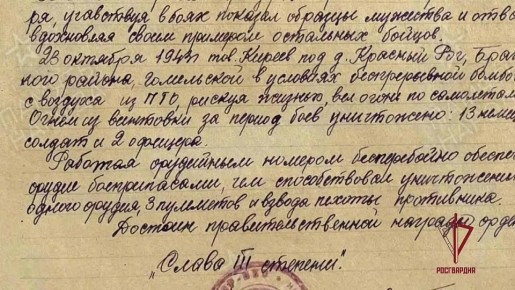 ря, участвуя в боях показал образцы мужества и отва
вдохновляя своим примером остальных бойцов.
28 октября 1943г тов. Киреев под д. Красный Рог, Браг
ного района, Гомельской в условиях беспрерывной бомбо
с воздуха из ПТО, рискуя жизнью, вел огонь по самолетам
Огнем из винтовки за период боев уничтожено: 13 немец
солдат и 2 офицера.
Работая орудийным номером бесперебойно обеспе
орудие боеприпасами, чем способствовал уничтожени
одного орудия, 3 пулеметов и взвода пехоты противника.
Достоин правительственной награды орде
"Слава III степени".
РОСГВАРДИЯ